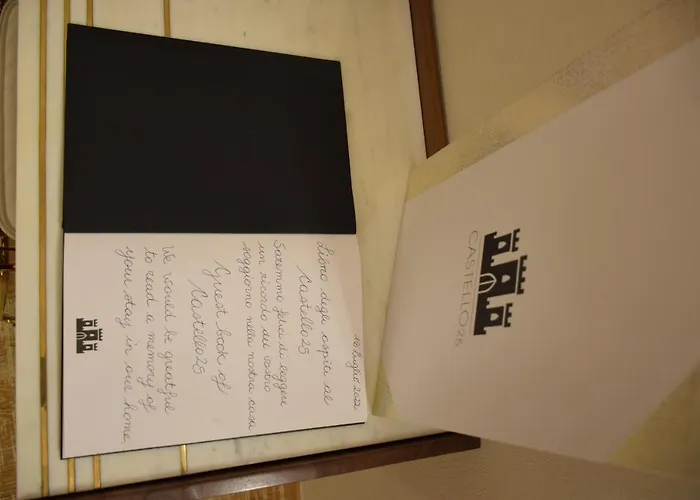 16 luglio 2022
Libro degli ospiti al
Castello25
Saremmo felici di leggere
un ricordo del vostro
soggiorno nella nostra casa
Guest book of
Castello25
We would be greatful
to read a memory of
your stay in our home
CASTELLO25